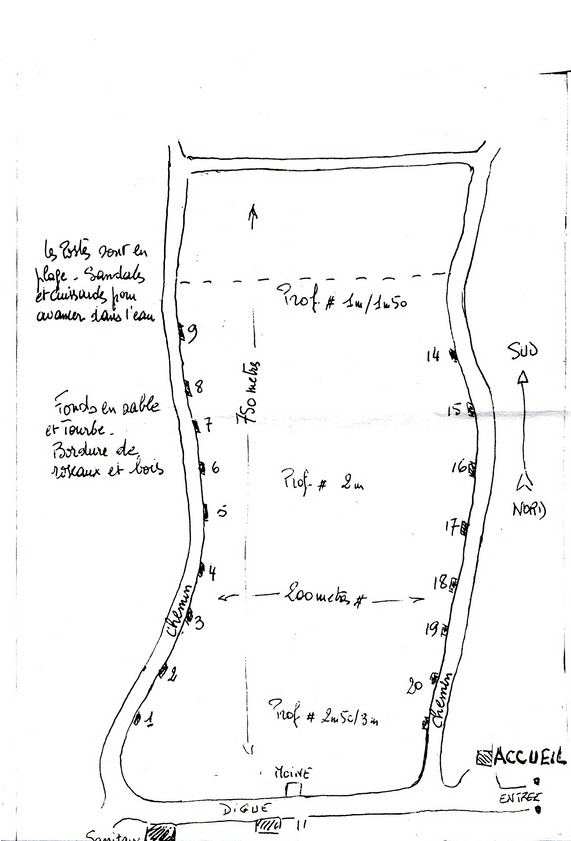 les Postes sont en
plage. Sandales
et cuissardes pour
avancer dans l'eau
Prof. # 1m/1m50
9
14
SUD
8
750 metres
15
Fonds en sable
et Tourbe.
Bordure de
roseaux et bois
7
6
Prof. # 2m
16
NORD
5
17
4
200 metres #
18
Chemin
3
19
2
20
Chemin
1
Prof # 2m50/3m
ACCUEIL
MOINE
ENTREE
DIGUE
11
Sanitaire